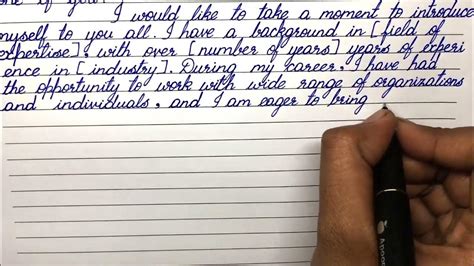 I would like to take a moment to introduce
myself to you all. I have a background in [field of
expertise], with over [number of years] years of experi
ence in [industry]. During my career, I have had
the opportunity to work with wide range of organizations
and individuals, and I am eager to bring